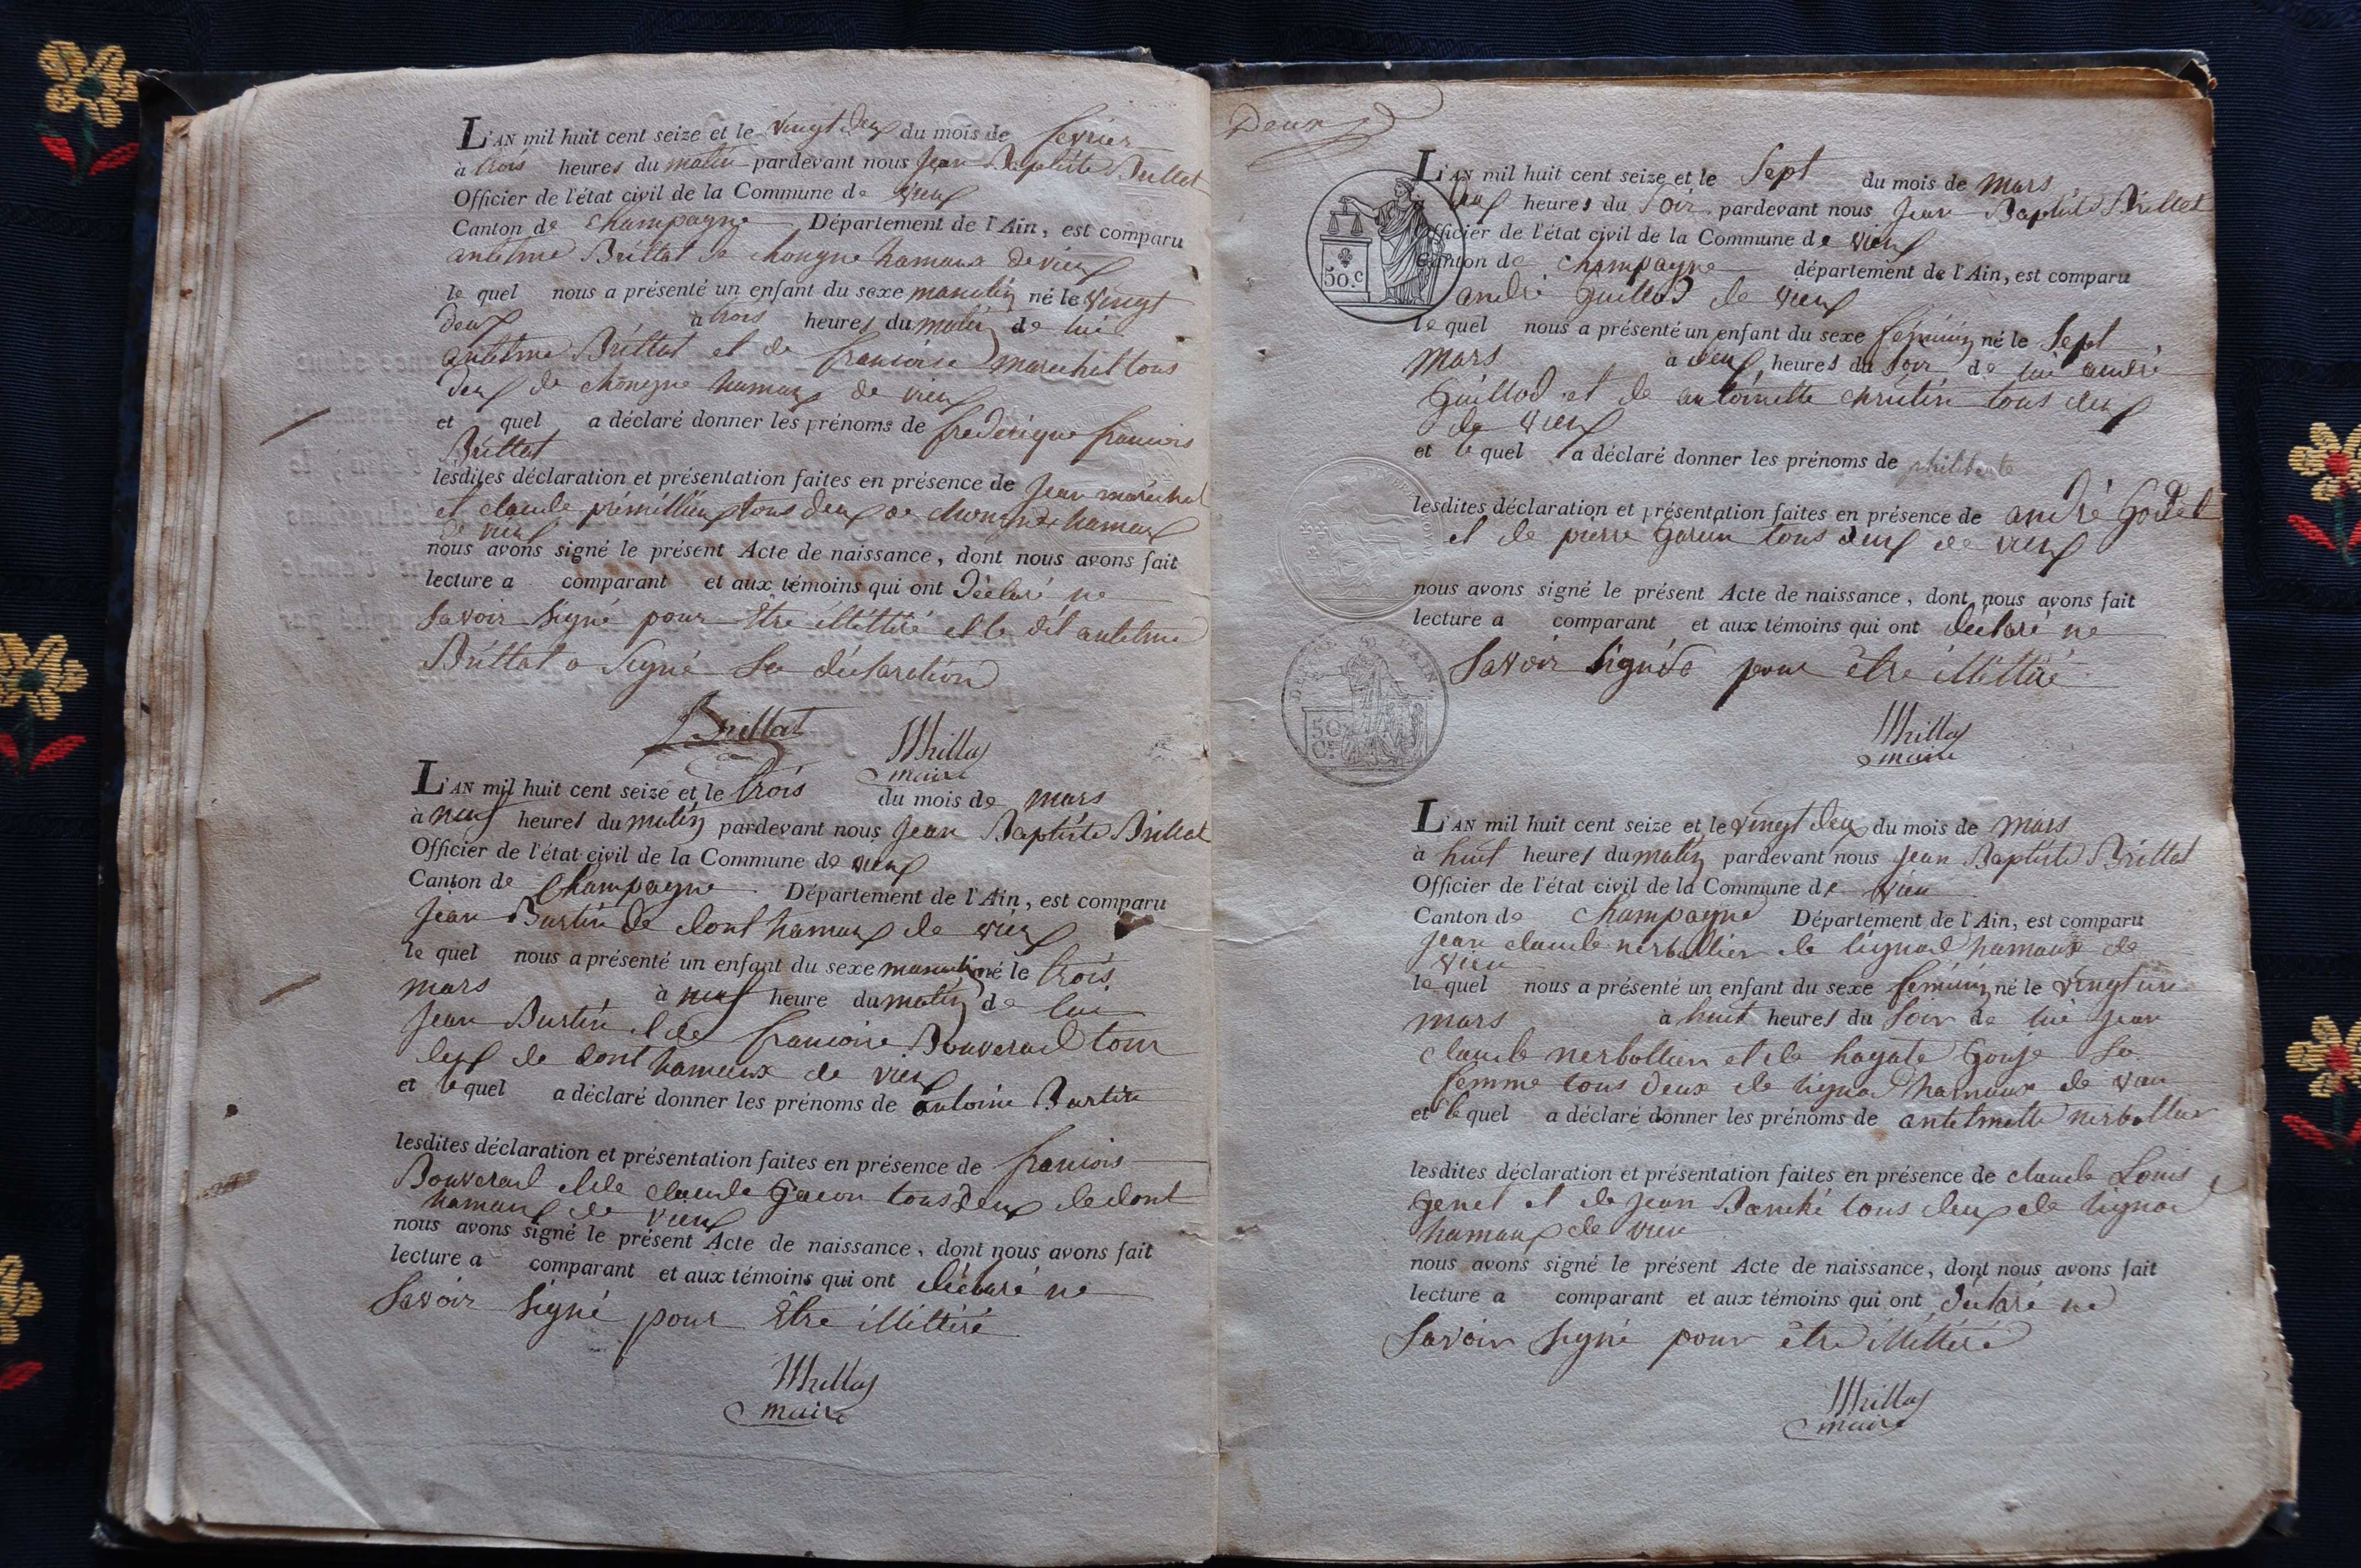 L'AN mil huit cent seize et le vingt deux du mois de fevrier
à trois heures du matin pardevant nous Jean Baptiste Brillat
Officier de l'état civil de la Commune de vieux
Canton de Champagne Département de l'Ain, est comparu
antelme Brillat de chongne hamaux de vieux
le quel nous a présenté un enfant du sexe masculin né le vingt
deux à trois heures du matin de lui
antelme Brillat et de francoise marechal tous
deux de chongne hamaux de vieux
et quel a déclaré donner les prénoms de frederique francois
Brillat
lesdites déclaration et présentation faites en présence de Jean marechal
et claude tous deux de chongne hamaux
de vieux
nous avons signé le présent Acte de naissance, dont nous avons fait
lecture a comparant et aux témoins qui ont déclaré ne
savoir signé pour être illittéré et le dit antelme
Brillat a signé sa déclaration
Brillat
maire
L'AN mil huit cent seize et le trois du mois de mars
à neuf heures du matin pardevant nous Jean Baptiste Brillat
Officier de l'état civil de la Commune de vieux
Canton de Champagne Département de l'Ain, est comparu
Jean Burtin de dont hamaux de vieux
le quel nous a présenté un enfant du sexe masculin né le trois
mars à neuf heure du matin de lui
Jean Burtin et de francoise Bouverad tous
deux de dont hameaux de vieux
et le quel a déclaré donner les prénoms de antoine Burtin
lesdites déclaration et présentation faites en présence de francois
Bouverad et de claude tous deux de dont
hamaux de vieux
nous avons signé le présent Acte de naissance, dont nous avons fait
lecture a comparant et aux témoins qui ont déclaré ne
savoir signé pour être illittéré
maire
Deux
50.c
L'AN mil huit cent seize et le Sept du mois de mars
à deux heures du soir pardevant nous Jean Baptiste Brillat
Officier de l'état civil de la Commune de vieux
Canton de champagne département de l'Ain, est comparu
andré Guillod de vieux
le quel nous a présenté un enfant du sexe feminin né le Sept
mars à deux heures du soir de lui andré
Guillod et de antoinette chrutin tous deux
de vieux
et le quel a déclaré donner les prénoms de philiberte
lesdites déclaration et présentation faites en présence de andré Godet
et de pierre tous deux de vieux
nous avons signé le présent Acte de naissance, dont nous avons fait
lecture a comparant et aux témoins qui ont déclaré ne
savoir signé pour être illittéré
50
maire
L'AN mil huit cent seize et le vingt deux du mois de mars
à huit heures du matin pardevant nous Jean Baptiste Brillat
Officier de l'état civil de la Commune de vieu
Canton de Champagne Département de l'Ain, est comparu
Jean claude nerbollier de lignod hamaux de
vieu
le quel nous a présenté un enfant du sexe feminin né le vingt un
mars à huit heures du soir de lui Jean
claude nerbollier et de hagate Gouje sa
femme tous deux de lignod hamaux de vieu
et le quel a déclaré donner les prénoms de antelmette nerbollier
lesdites déclaration et présentation faites en présence de claude Louis
Genet et de Jean tous deux de lignod
hamaux de vieu
nous avons signé le présent Acte de naissance, dont nous avons fait
lecture a comparant et aux témoins qui ont déclaré ne
savoir signé pour être illittéré
maire